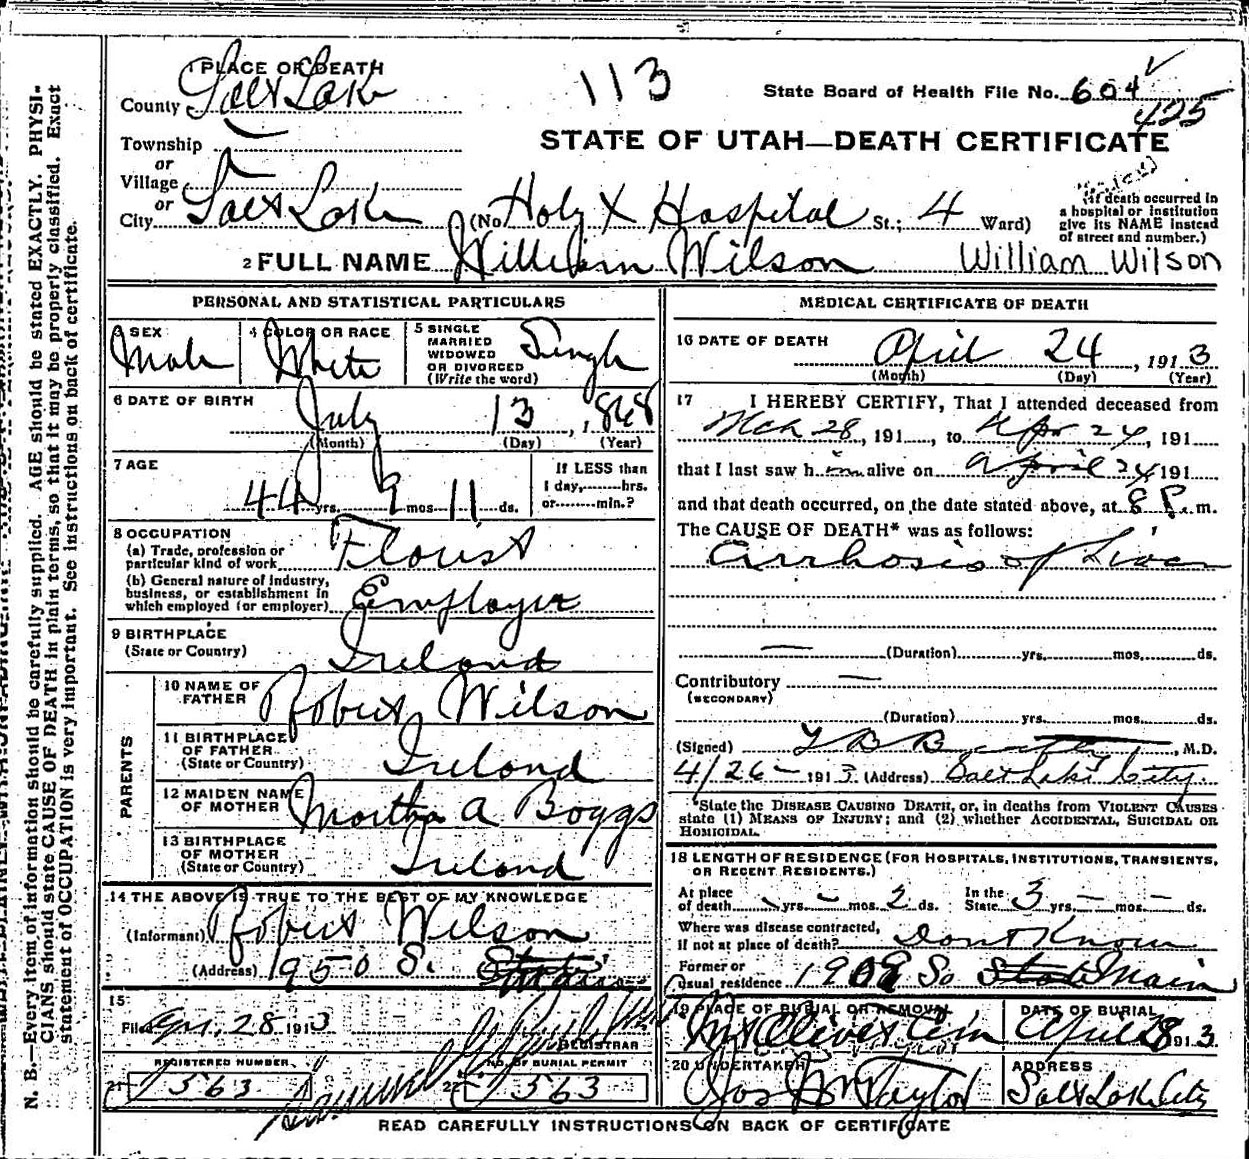 1 PLACE OF DEATH
113
State Board of Health File No. 604
425
County Salt Lake
STATE OF UTAH—DEATH CERTIFICATE
Township
or
Village
or
City Salt Lake (No. Holy X Hospital St.; 4 Ward)
(If death occurred in
a hospital or institution
give its NAME instead
of street and number.)
2 FULL NAME William Wilson William Wilson
PERSONAL AND STATISTICAL PARTICULARS
3 SEX Male
4 COLOR OR RACE White
5 SINGLE
MARRIED
WIDOWED
OR DIVORCED
(Write the word) Single
6 DATE OF BIRTH July 13, 1868
(Month) (Day) (Year)
7 AGE
44 yrs. 9 mos 11 ds.
If LESS than
1 day, hrs.
or min.?
8 OCCUPATION
(a) Trade, profession or
particular kind of work Florist
(b) General nature of industry,
business, or establishment in
which employed (or employer) Employee
9 BIRTHPLACE
(State or Country) Ireland
PARENTS
10 NAME OF
FATHER Robert Wilson
11 BIRTHPLACE
OF FATHER
(State or Country) Ireland
12 MAIDEN NAME
OF MOTHER Martha A Boggs
13 BIRTHPLACE
OF MOTHER
(State or Country) Ireland
14 THE ABOVE IS TRUE TO THE BEST OF MY KNOWLEDGE
(Informant) Robert Wilson
(Address) 1950 S.
15
Filed 28 1913
REGISTRAR
REGISTERED NUMBER
21 563
NO. OF BURIAL PERMIT
22 563
MEDICAL CERTIFICATE OF DEATH
16 DATE OF DEATH April 24, 1913
(Month) (Day) (Year)
17 I HEREBY CERTIFY, That I attended deceased from
Mch 28, 191 , to Apr 24, 191
that I last saw him alive on April 24 191
and that death occurred, on the date stated above, at 8 P. m.
The CAUSE OF DEATH* was as follows:
Cirrhosis of Liver
(Duration) yrs. mos. ds.
Contributory
(SECONDARY)
(Duration) yrs. mos. ds.
(Signed) M.D.
4/26 1913 (Address) Salt Lake City
*State the DISEASE CAUSING DEATH, or, in deaths from VIOLENT CAUSES
state (1) MEANS OF INJURY; and (2) whether ACCIDENTAL, SUICIDAL OR
HOMICIDAL.
18 LENGTH OF RESIDENCE (FOR HOSPITALS, INSTITUTIONS, TRANSIENTS,
OR RECENT RESIDENTS.)
At place
of death yrs. mos. 2 ds.
In the
State 3 yrs. mos. ds.
Where was disease contracted,
if not at place of death? Dont Know
Former or
usual residence So Main
19 PLACE OF BURIAL OR REMOVAL Mt Olivet Cem
DATE OF BURIAL April 28 1913
20 UNDERTAKER Jos Wm Taylor
ADDRESS Salt Lake City
READ CAREFULLY INSTRUCTIONS ON BACK OF CERTIFICATE
N. B.—Every item of information should be carefully supplied. AGE should be stated EXACTLY. PHYSI-
CIANS should state CAUSE OF DEATH in plain terms, so that it may be properly classified. Exact
statement of OCCUPATION is very important. See instructions on back of certificate.